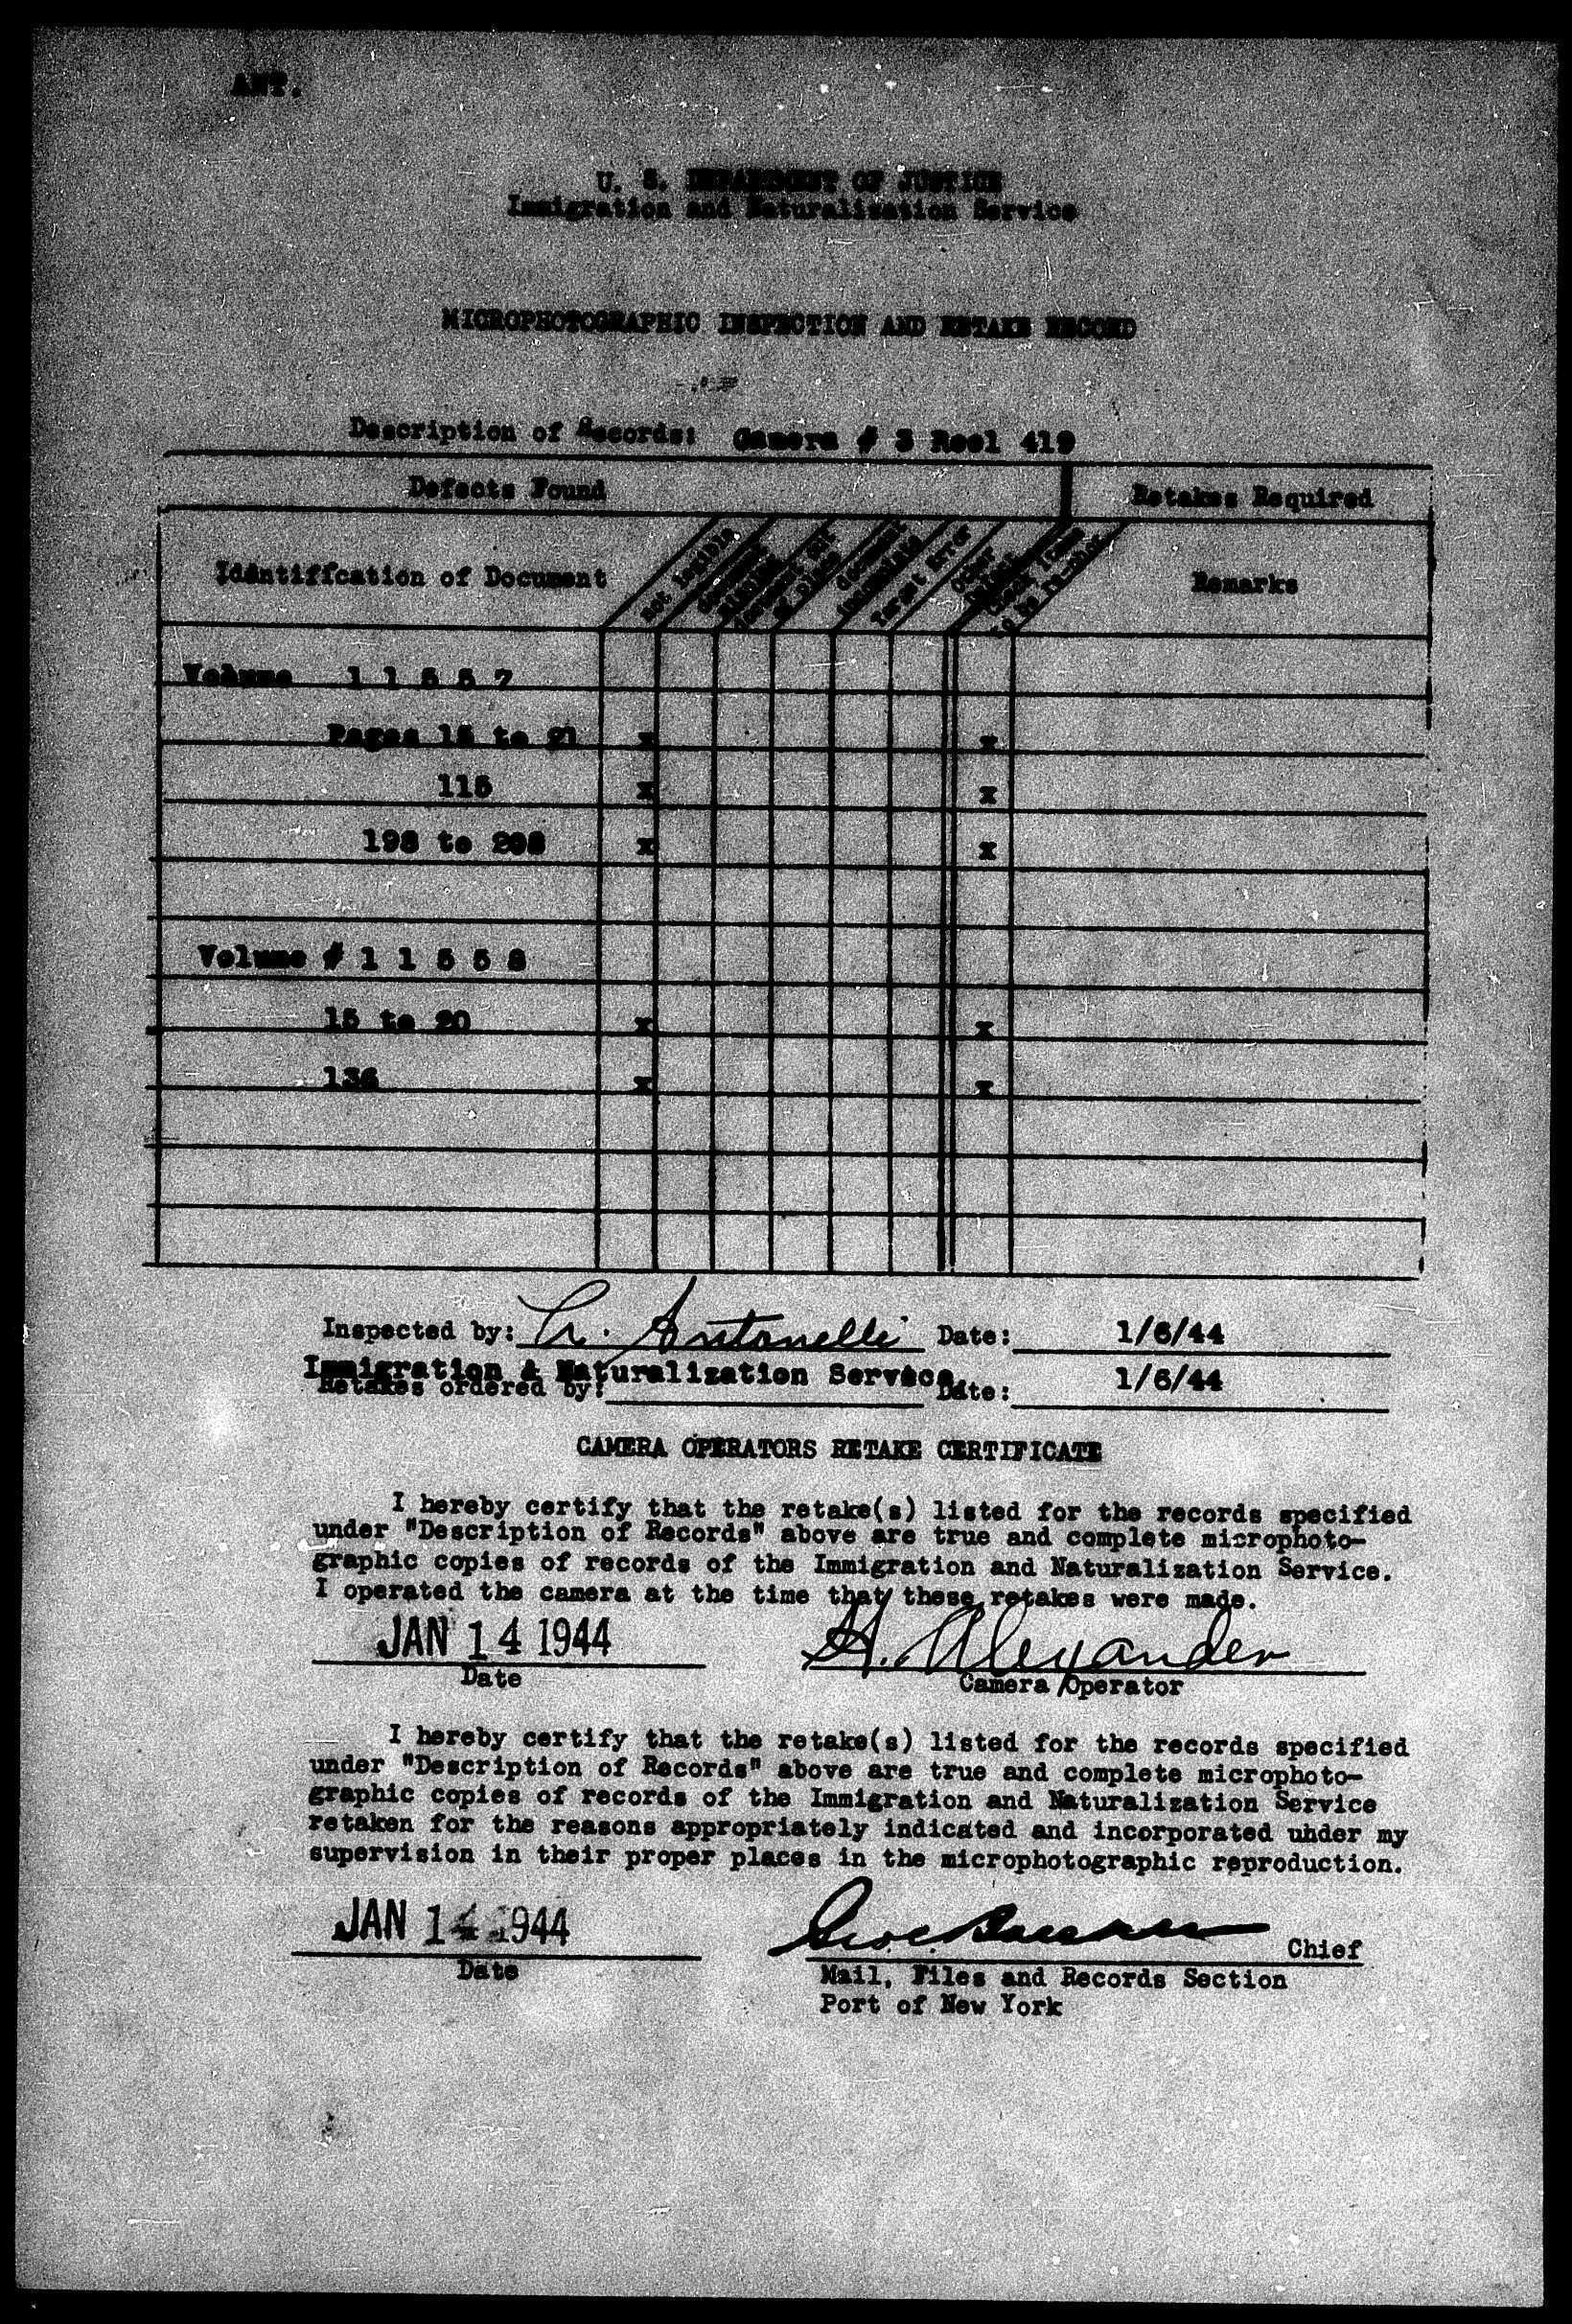 ANT.
U. S. DEPARTMENT OF JUSTICE
Immigration and Naturalization Service
MICROPHOTOGRAPHIC INSPECTION AND RETAKE RECORD
Description of Records: Camera # 3 Reel 419
Defects Found
Retakes Required
Identiffcation of Document
not legible
document
document not
in place
document
incomplete
Target Error
Other
Check items
to be re-shot
Remarks
Volume 1 1 5 5 7
Pages 15 to 21 x x
115 x x
198 to x x
Volume # 1 1 5 5 8
15 to 20 x x
136 x x
Inspected by: Antonelli Date: 1/6/44
Immigration & Naturalization Service
Retakes ordered by: Date: 1/6/44
CAMERA OPERATORS RETAKE CERTIFICATE
I hereby certify that the retake(s) listed for the records specified
under "Description of Records" above are true and complete microphoto-
graphic copies of records of the Immigration and Naturalization Service.
I operated the camera at the time that these retakes were made.
JAN 14 1944 H. Alexander
Date Camera Operator
I hereby certify that the retake(s) listed for the records specified
under "Description of Records" above are true and complete microphoto-
graphic copies of records of the Immigration and Naturalization Service
retaken for the reasons appropriately indicated and incorporated under my
supervision in their proper places in the microphotographic reproduction.
JAN 14 1944 Chief
Date
Mail, Files and Records Section
Port of New York